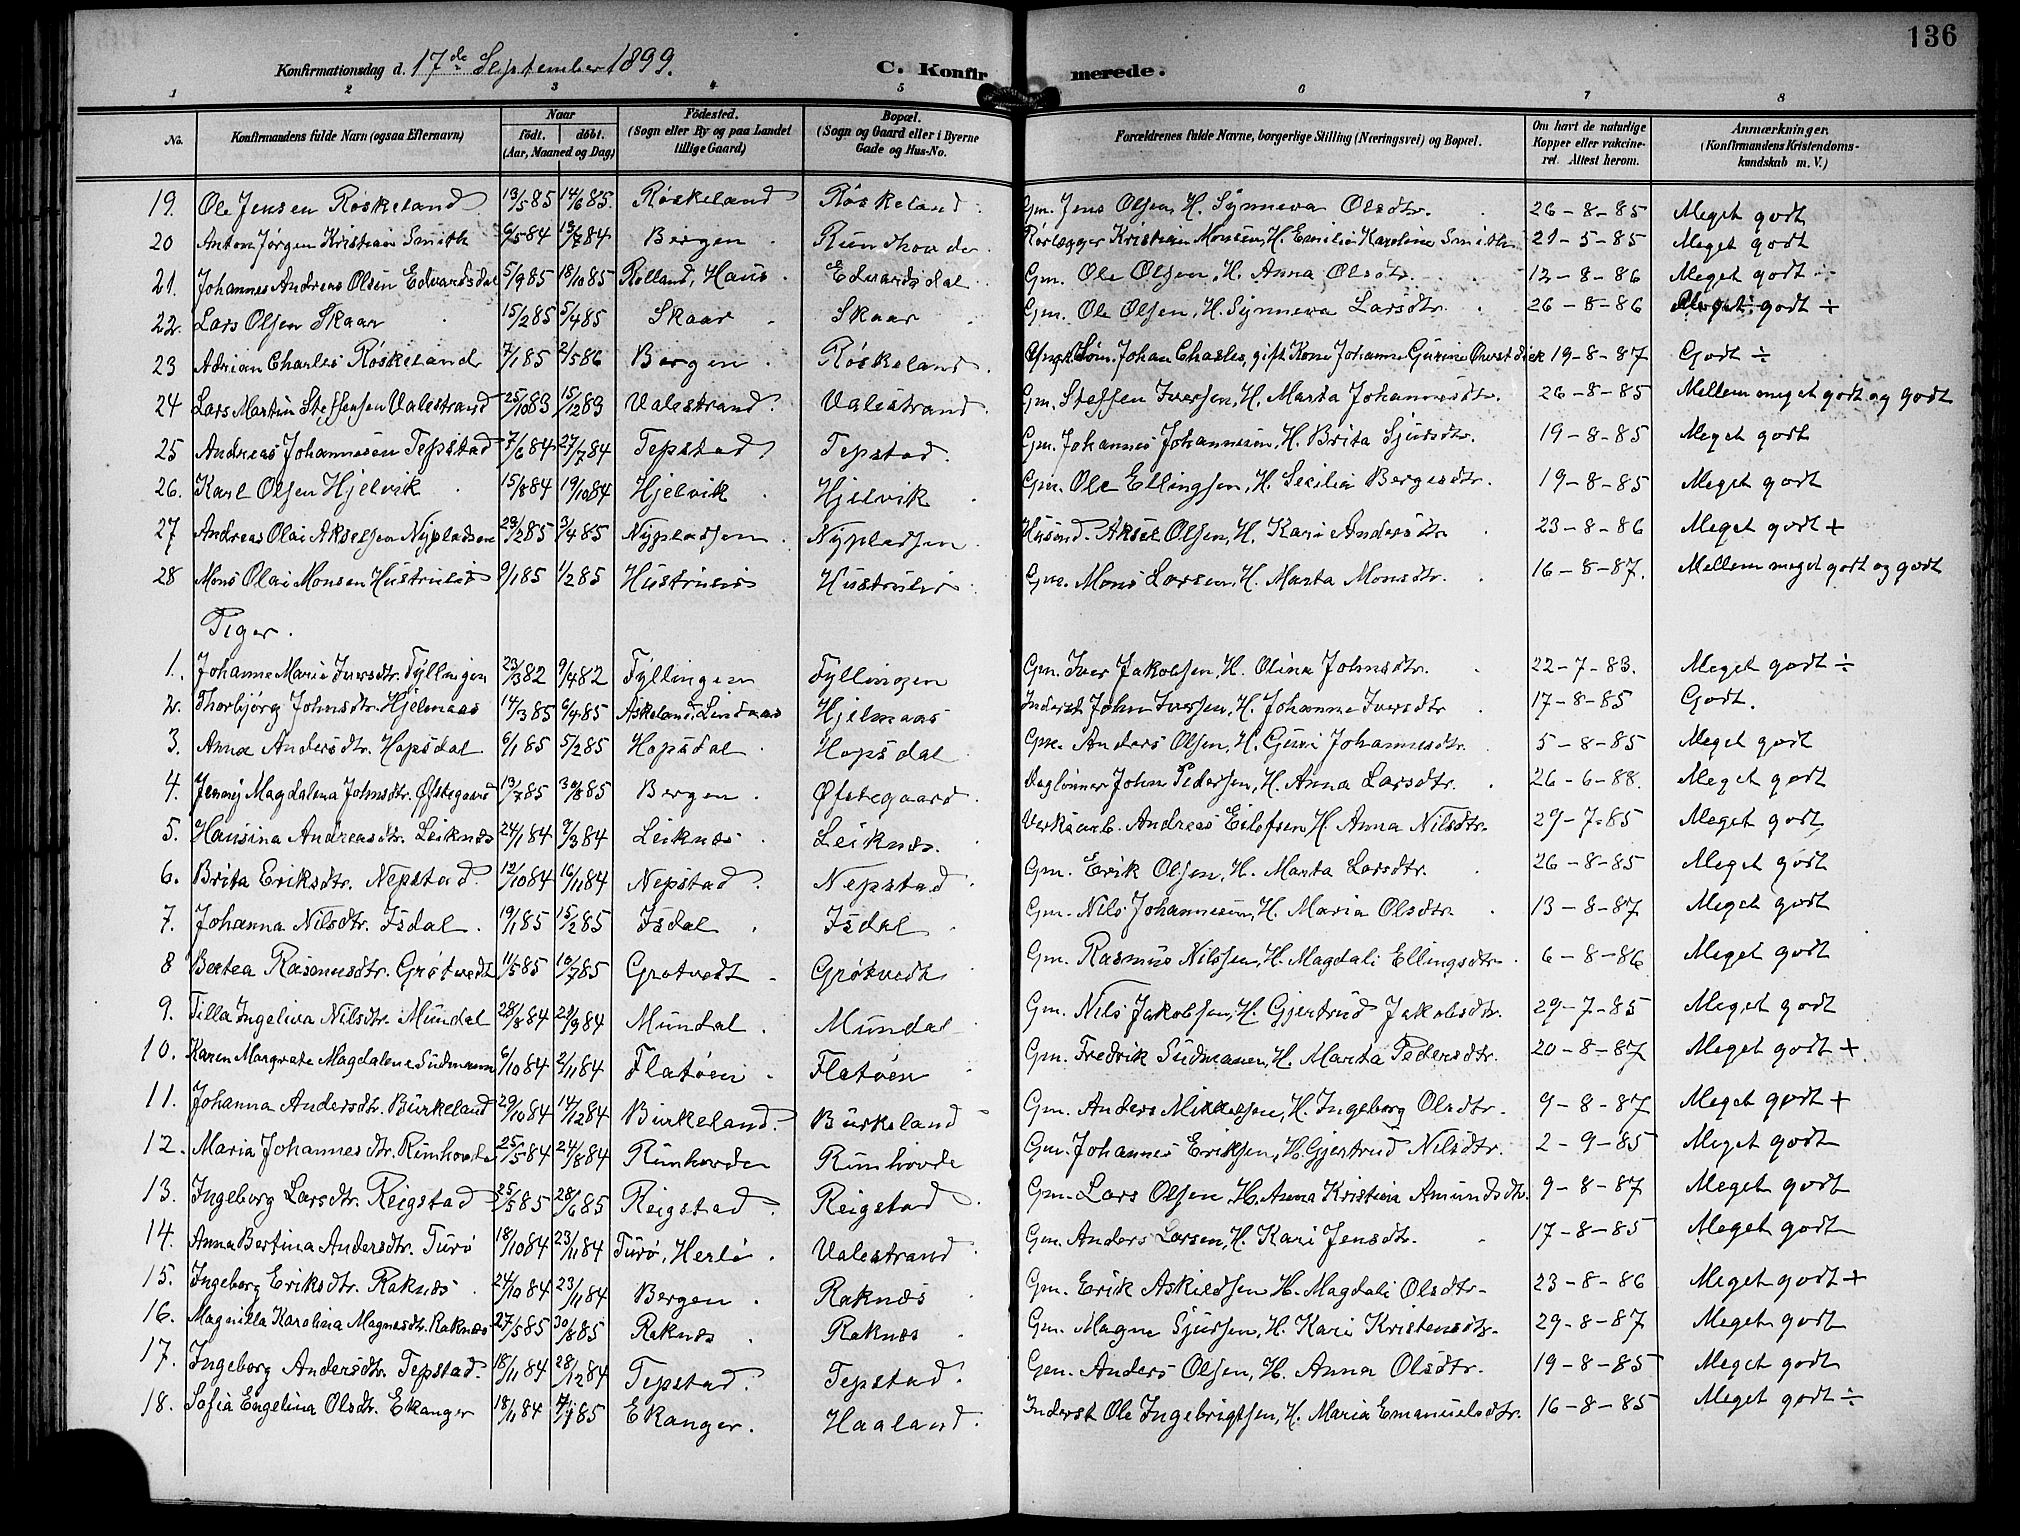 136
Konfirmationsdag d. 17de September 1899. C. Konfirmerede.
1 2 3 4 5 6 7 8
No. Konfirmandens fulde Navn (ogsaa Efternavn) Naar født. døbt. (Aar, Maaned og Dag) Fødested. (Sogn eller By og paa Landet tillige Gaard) Bopæl. (Sogn og Gaard eller i Byerne Gade og Hus-No. Forældrenes fulde Navne, borgerlige Stilling (Næringsvei) og Bopæl. Om havt de naturlige Kopper eller vakcineret. Attest herom. Anmærkninger. (Konfirmandens Kristendomskundskab m. V.)
19. Ole Jensen Røskeland 13/5 85 14/6 85. Røskeland Røskeland Gm. Jens Olsen, H. Synneva Olsdtr. 26-8-85 Meget godt
20 Anton Jørgen Kristian Smith 6/5 84 13/7 84 Bergen Rundhovde Rørlægger Kristian Monsen, H. Emilie Karoline Smith 21-5-85 Meget godt
21. Johannes Andreas Olsen Edvardsdal 5/9 85 18/10 85 Rolland, Haus Edvardsdal Gm. Ole Olsen, H. Anna Olsdtr. 12-8-86 Meget godt
22. Lars Olsen Skaar 15/2 85 5/4 85 Skaar Skaar Gm. Ole Olsen, H. Synneva Larsdtr. 26-8-86 Meget godt +
23 Adrian Charles Røskeland 7/1 85 2/5 86 Bergen Røskeland Johan Charles, gift Kone Johanne Gurine 19-8-87 Godt ÷
24 Lars Martin Steffensen Valestrand 25/10 83 15/12 83 Valestrand. Valestrand Gm. Steffen Iversen, H. Marta Johannesdtr. 26-8-85 Mellem meget godt og godt
25 Andreas Johannesen Tepstad 7/6 84 27/7 84 Tepstad Tepstad. Gm. Johannes Johannesen, H. Brita Sjursdtr. 19-8-85 Meget godt
26. Karl Olsen Hjelvik 15/8 84 19/10 84 Hjelvik Hjelvik Gm. Ole Ellingsen, H. Secilia Bergesdtr. 19-8-85 Meget godt
27 Andreas Olai Akselsen Nypladsen 23/2 85 3/4 85 Nypladsen Nypladsen Husmd. Aksel Olsen, H. Kari Andersdtr 23-8-86 Meget godt +
28 Mons Olai Monsen Hustrulid 9/1 85 1/2 85 Hustrulid Hustrulid Gm. Mons Larsen, H. Marta Monsdtr. 16-8-87. Mellem meget godt og godt
Piger.
1. Johanne Marie Iversdtr. Fyllingen 23/3 82 9/4 82 Fyllingen Fyllingen Gm. Iver Jakobsen, H. Olina Johnsdtr. 22-7-83. Meget godt ÷
2. Thorbjørg Johnsdtr. Hjelmaas 14/3 85 6/4 85 Askeland, Lindaas Hjelmaas Inderst John Iversen, H. Johanne Iversdtr 17-8-85 Godt.
3. Anna Andersdtr. Hopsdal 6/1 85 5/2 85 Hopsdal Hopsdal Gm. Anders Olsen, H. Guri Johannesdtr. 5-8-85 Meget godt
4. Jenny Magdalena Johnsdtr. Øfstegaard 13/7 85 30/8 85 Bergen. Øfstegaard Daglønner John Pedersen, H. Anna Larsdtr. 26-6-88. Meget godt
5. Hansina Andreasdtr. Leiknæs 24/1 84 9/3 84 Leiknæs Leiknæs. Verksarb. Andreas Eilefsen H. Anna Nilsdtr. 29-7-85 Meget godt
6. Brita Eriksdtr. Nepstad. 12/10 84 16/11 84 Nepstad. Nepstad Gm. Erik Olsen, H. Marta Larsdtr. 26-8-85 Meget godt
7. Johanna Nilsdtr. Isdal. 19/1 85 15/2 85 Isdal Isdal Gm. Nils Johannesen, H. Maria Olsdtr. 13-8-87 Meget godt
8 Bertea Rasmusdtr. Grøtvedt 11/5 85 12/7 85 Grøtvedt Grøtvedt Gm. Rasmus Nilssen, H. Magdali Ellingsdtr. 6-8-86 Meget godt
9. Tilla Ingeliva Nilsdtr. Mundal 28/8 84 28/9 84 Mundal Mundal Gm. Nils Jakobsen, H. Gjertrud Jakobsdtr. 29-7-85 Meget godt
10. Karen Margrete Magdalene Sudmann 6/10 84 2/11 84 Flatøen Flatøen Gm. Fredrik Sudmann, H. Marta Pedersdtr. 20-8-87 Meget godt +
11. Johanna Andersdtr. Burkeland 29/10 84 14/12 84 Burkeland. Burkeland Gm. Anders Mikkelsen, H. Ingeborg Olsdtr. 9-8-87 Meget godt +
12. Maria Johannesdtr. Rimhovde 25/5 84 24/8 84 Rimhovde Rimhovde Gm. Johannes Eriksen, H. Gjertrud Nilsdtr. 2-9-85 Meget godt
13. Ingeborg Larsdtr. Reigstad 25/5 85 28/6 85 Reigstad Reigstad Gm. Lars Olsen H. Anna Kristina Amundsdtr. 9-8-87 Meget godt
14. Anna Bertina Andersdtr. Turø 18/10 84 23/11 84 Turø, Herlø. Valestrand Gm. Anders Larsen, H. Kari Jensdtr. 17-8-85 Meget godt
15. Ingeborg Eriksdtr. Raknæs 24/10 84 23/11 84 Bergen. Raknæs Gm. Erik Askildsen H. Magdali Olsdtr. 23-8-86 Meget godt +
16. Magnilla Karolina Magnesdtr. Raknæs 27/5 85 30/8 85 Raknæs Raknæs Gm. Magne Sjursen, H. Kari Kristensdtr. 29-8-87 Meget godt
17. Ingeborg Andersdtr. Tepstad. 18/11 84 28/12 84 Tepstad. Tepstad. Gm. Anders Olsen, H. Anna Olsdtr. 19-8-85 Meget godt
18. Sofia Engelina Olsdtr. Ekanger 18/11 84 85 Ekanger. Haaland. Inderst Ole Ingebrigtsen, H. Maria Emanuelsdtr. 16-8-85 Meget godt ÷